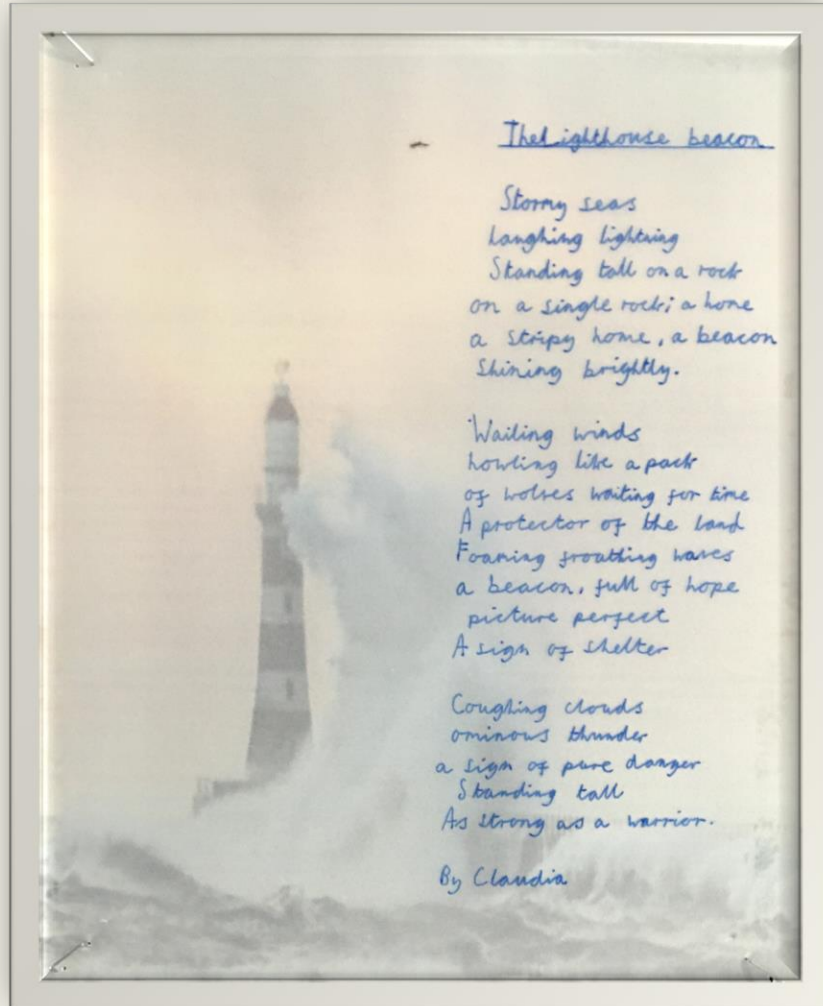 The Lighthouse beacon
Stormy seas
Laughing lightning
Standing tall on a rock
on a single rock; a home
a stripy home, a beacon
Shining brightly.
Wailing winds
howling like a pack
of wolves waiting for time
A protector of the land
Foaming froathing waves
a beacon, full of hope
picture perfect
A sign of shelter
Coughing clouds
ominous thunder
a sign of pure danger
Standing tall
As strong as a warrior.
By Claudia